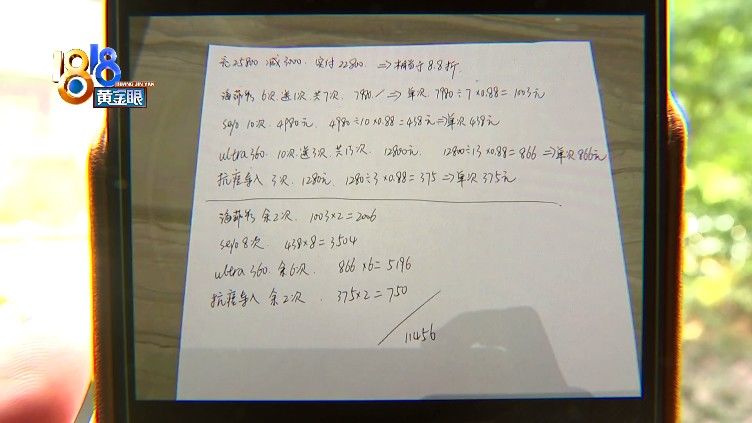 1818
HUANG JIN YAN
黄金眼
充25800 减3000. 实付22800. ⇒相当于8.8折.
海菲秀 6次.送1次.共7次. 7980./ ⇒单次. 7980÷7×0.88=1003元
seyo 10次. 4980元. 4980÷10×0.88=438元⇒单次438元
ultra360. 10次.送3次.共13次. 12800元. 12800÷13×0.88=866 ⇒单次866元
抗痘导入 3次. 1280元. 1280÷3×0.88=375⇒单次375元
海菲秀 余2次. 1003×2=2006
seyo 8次. 438×8=3504
ultra 360. 余6次. 866×6=5196
抗痘导入 余2次. 375×2=750
11456